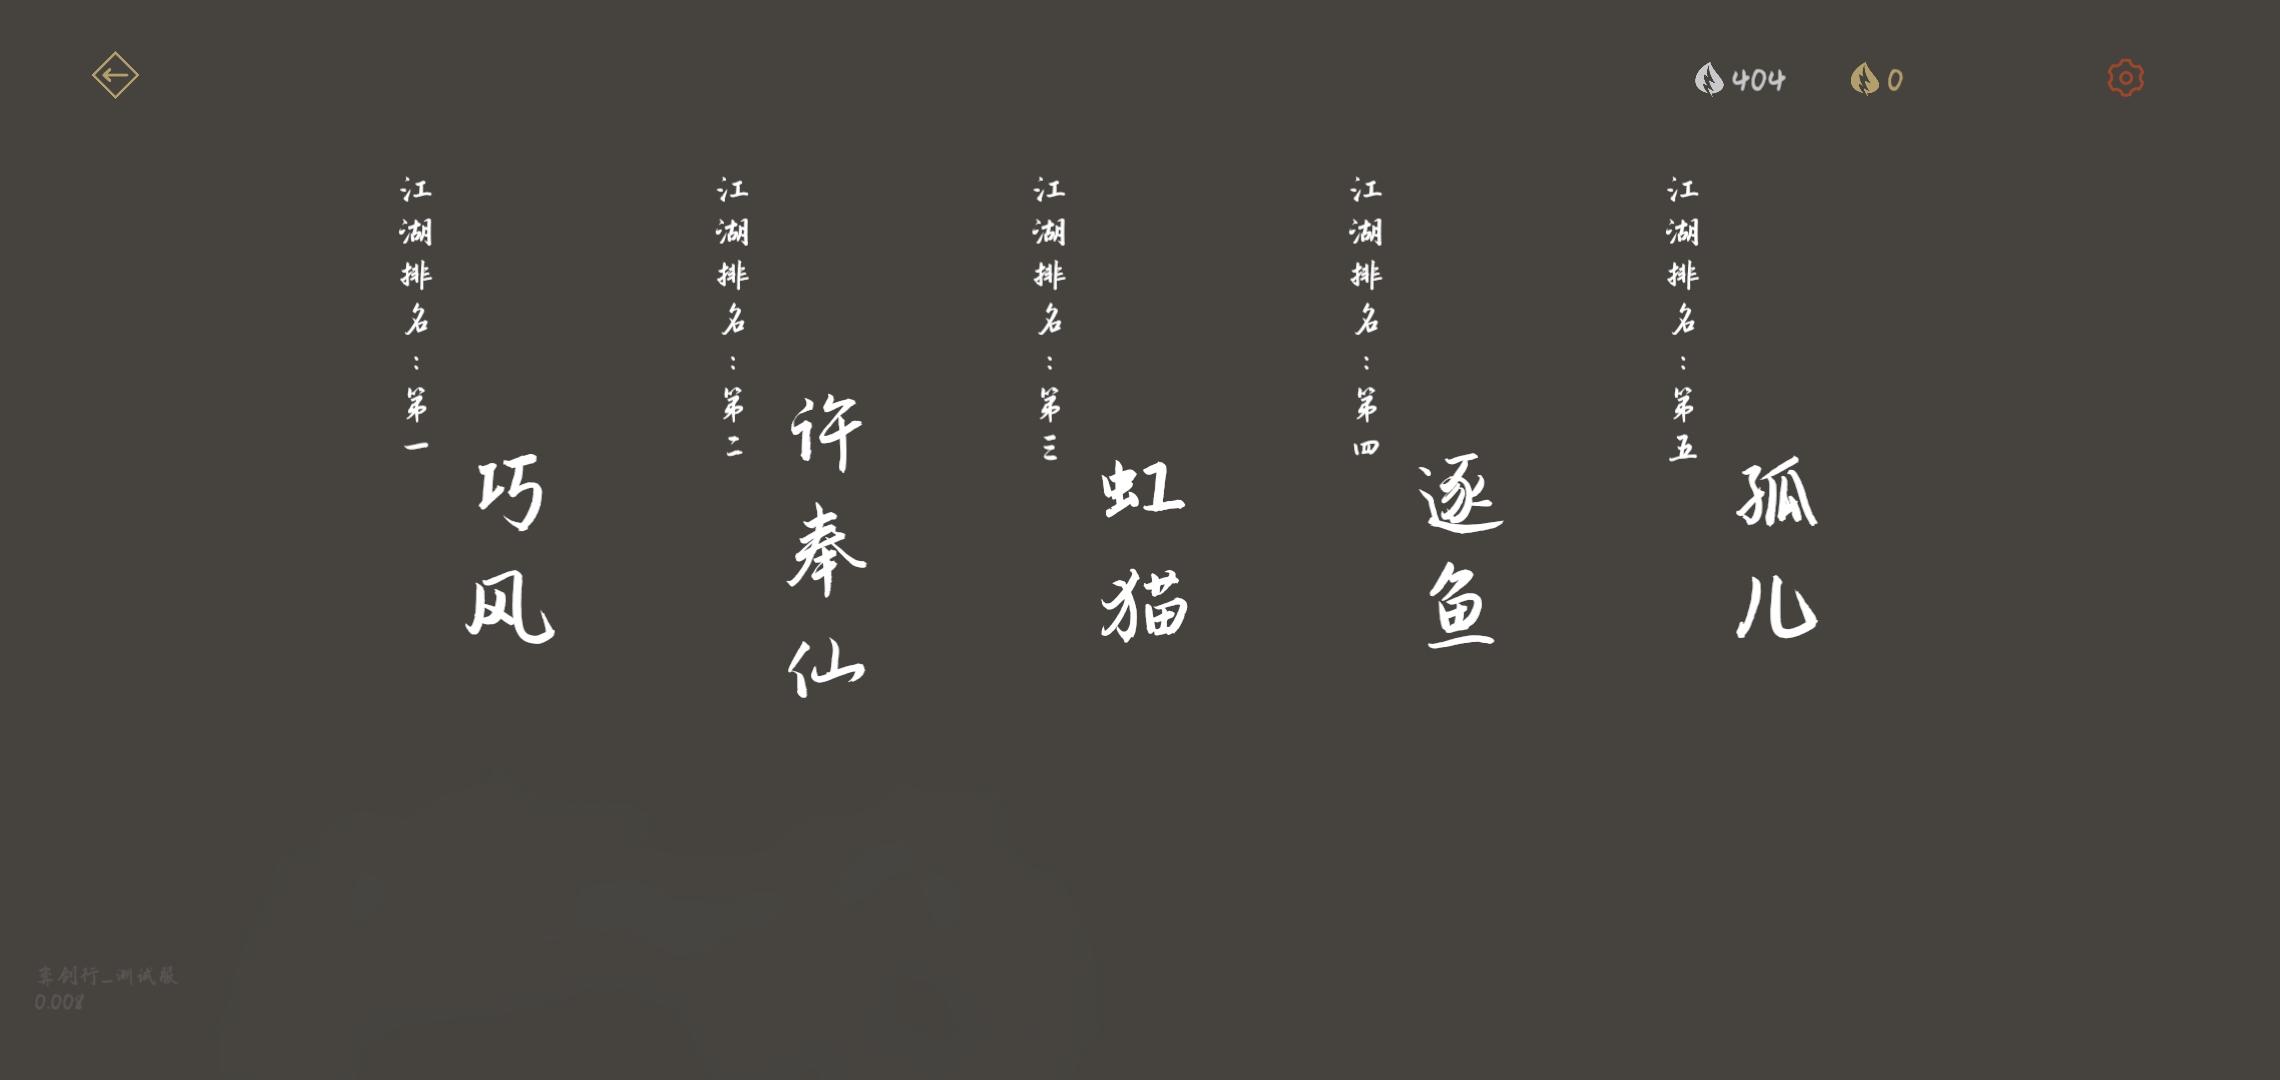 404
0
江湖排名：第一
巧风
江湖排名：第二
许奉仙
江湖排名：第三
虹猫
江湖排名：第四
逐鱼
江湖排名：第五
孤儿
弈剑行_测试服
0.008